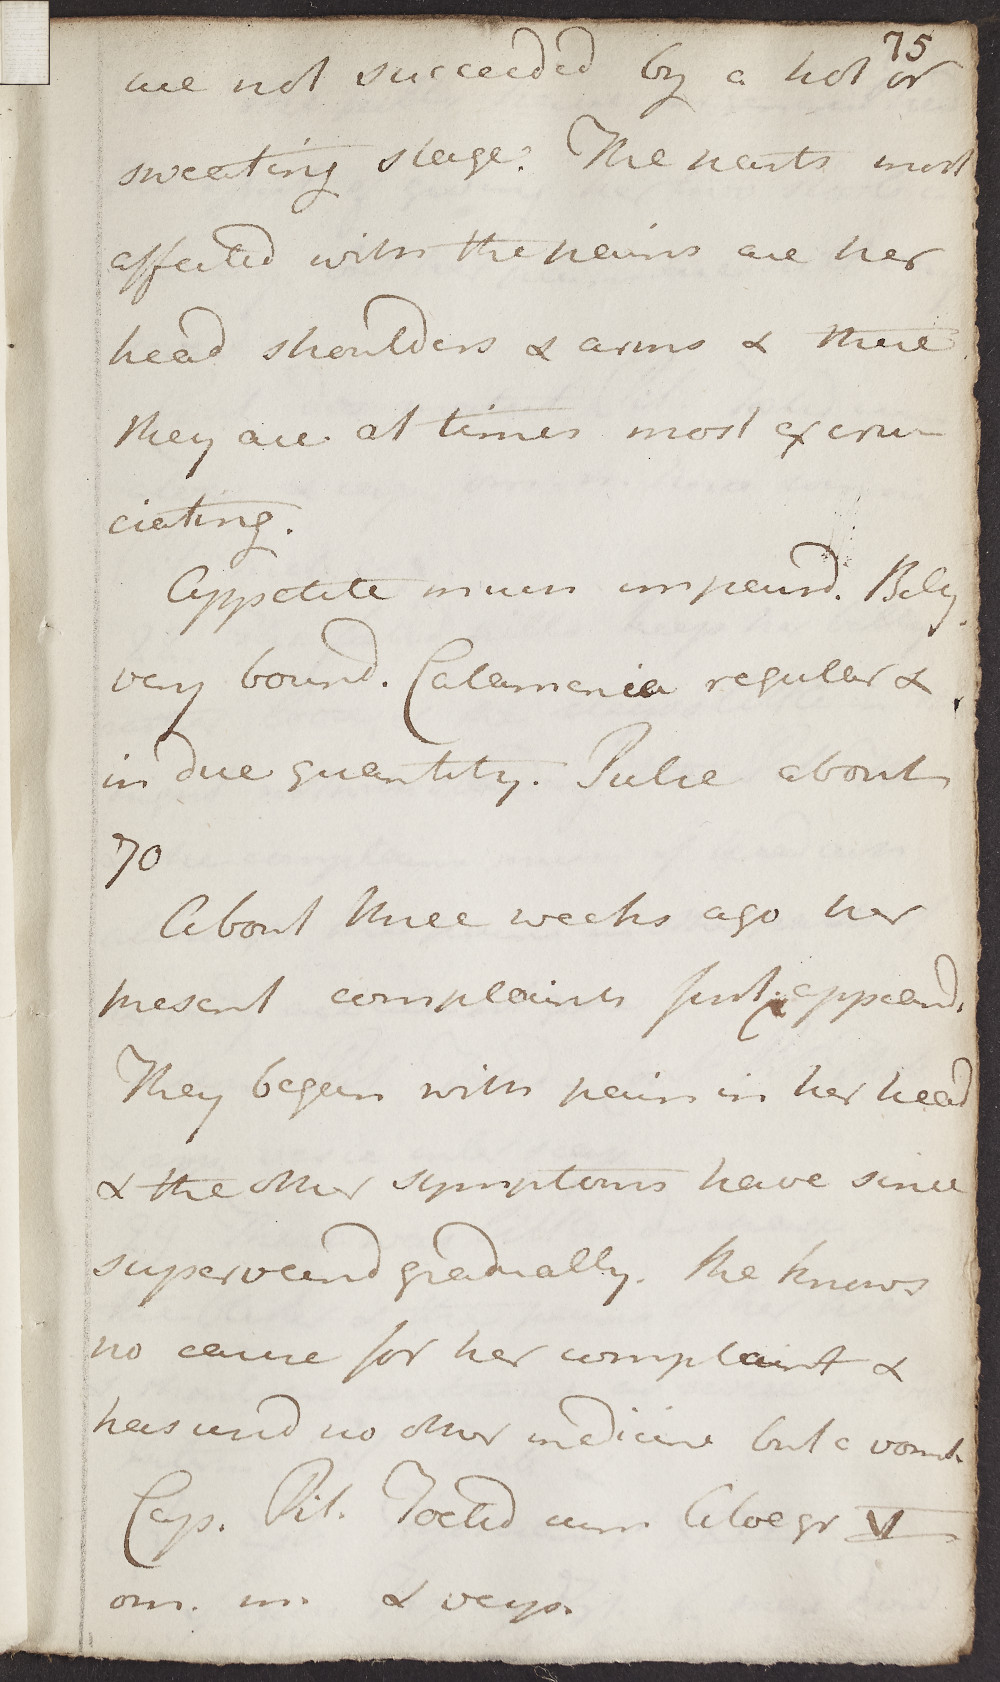 75
are not succeeded by a hot or
sweating stage. The parts most
affected with the pains are her
head shoulders & arms & there
they are at times most excru-
ciating.
Appetite much impaird. Bely
very bound. Catamenia regular &
in due quantity. Pulse about
70
About three weeks ago her
present complaints first appeard.
They began with pain in her head
& the other symptoms have since
supervend gradually. She knows
no cause for her complaint &
has used no other medicine but a vomit.
Cap. Pil. Foetid cum Aloe gr VI
om. m. & vesp.